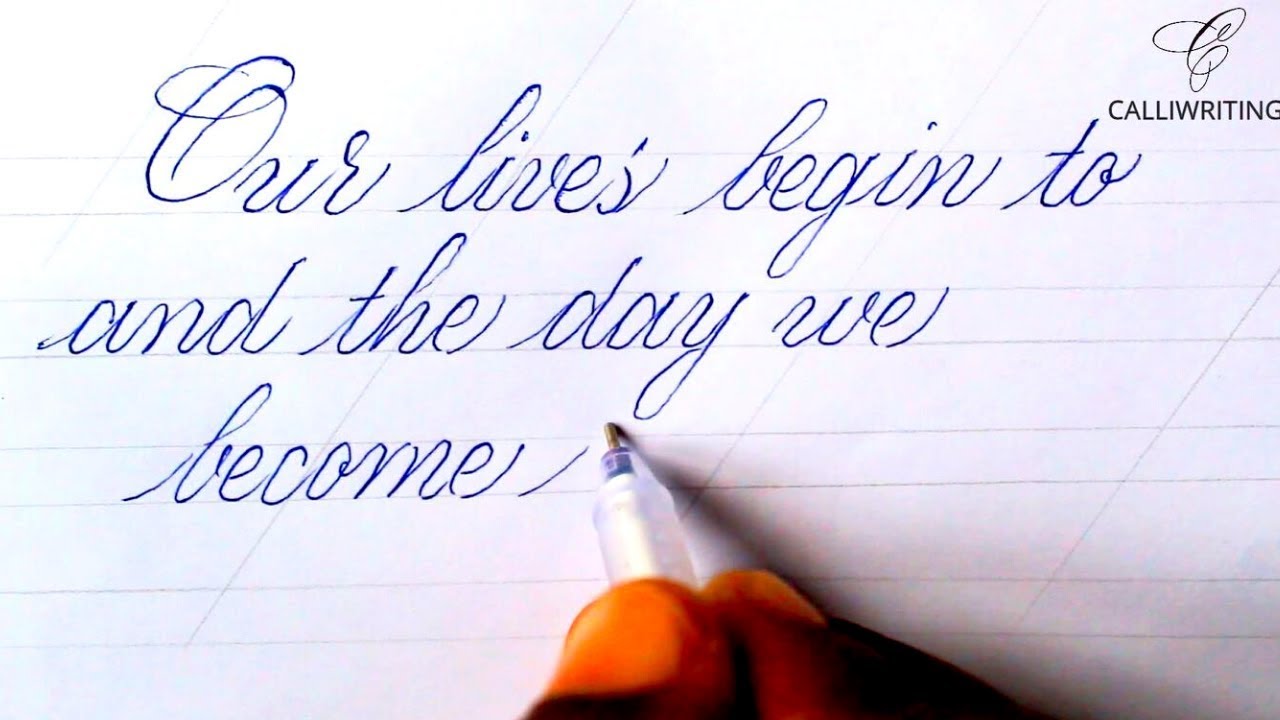 CALLIWRITING
Our live's begin to
and the day we
become